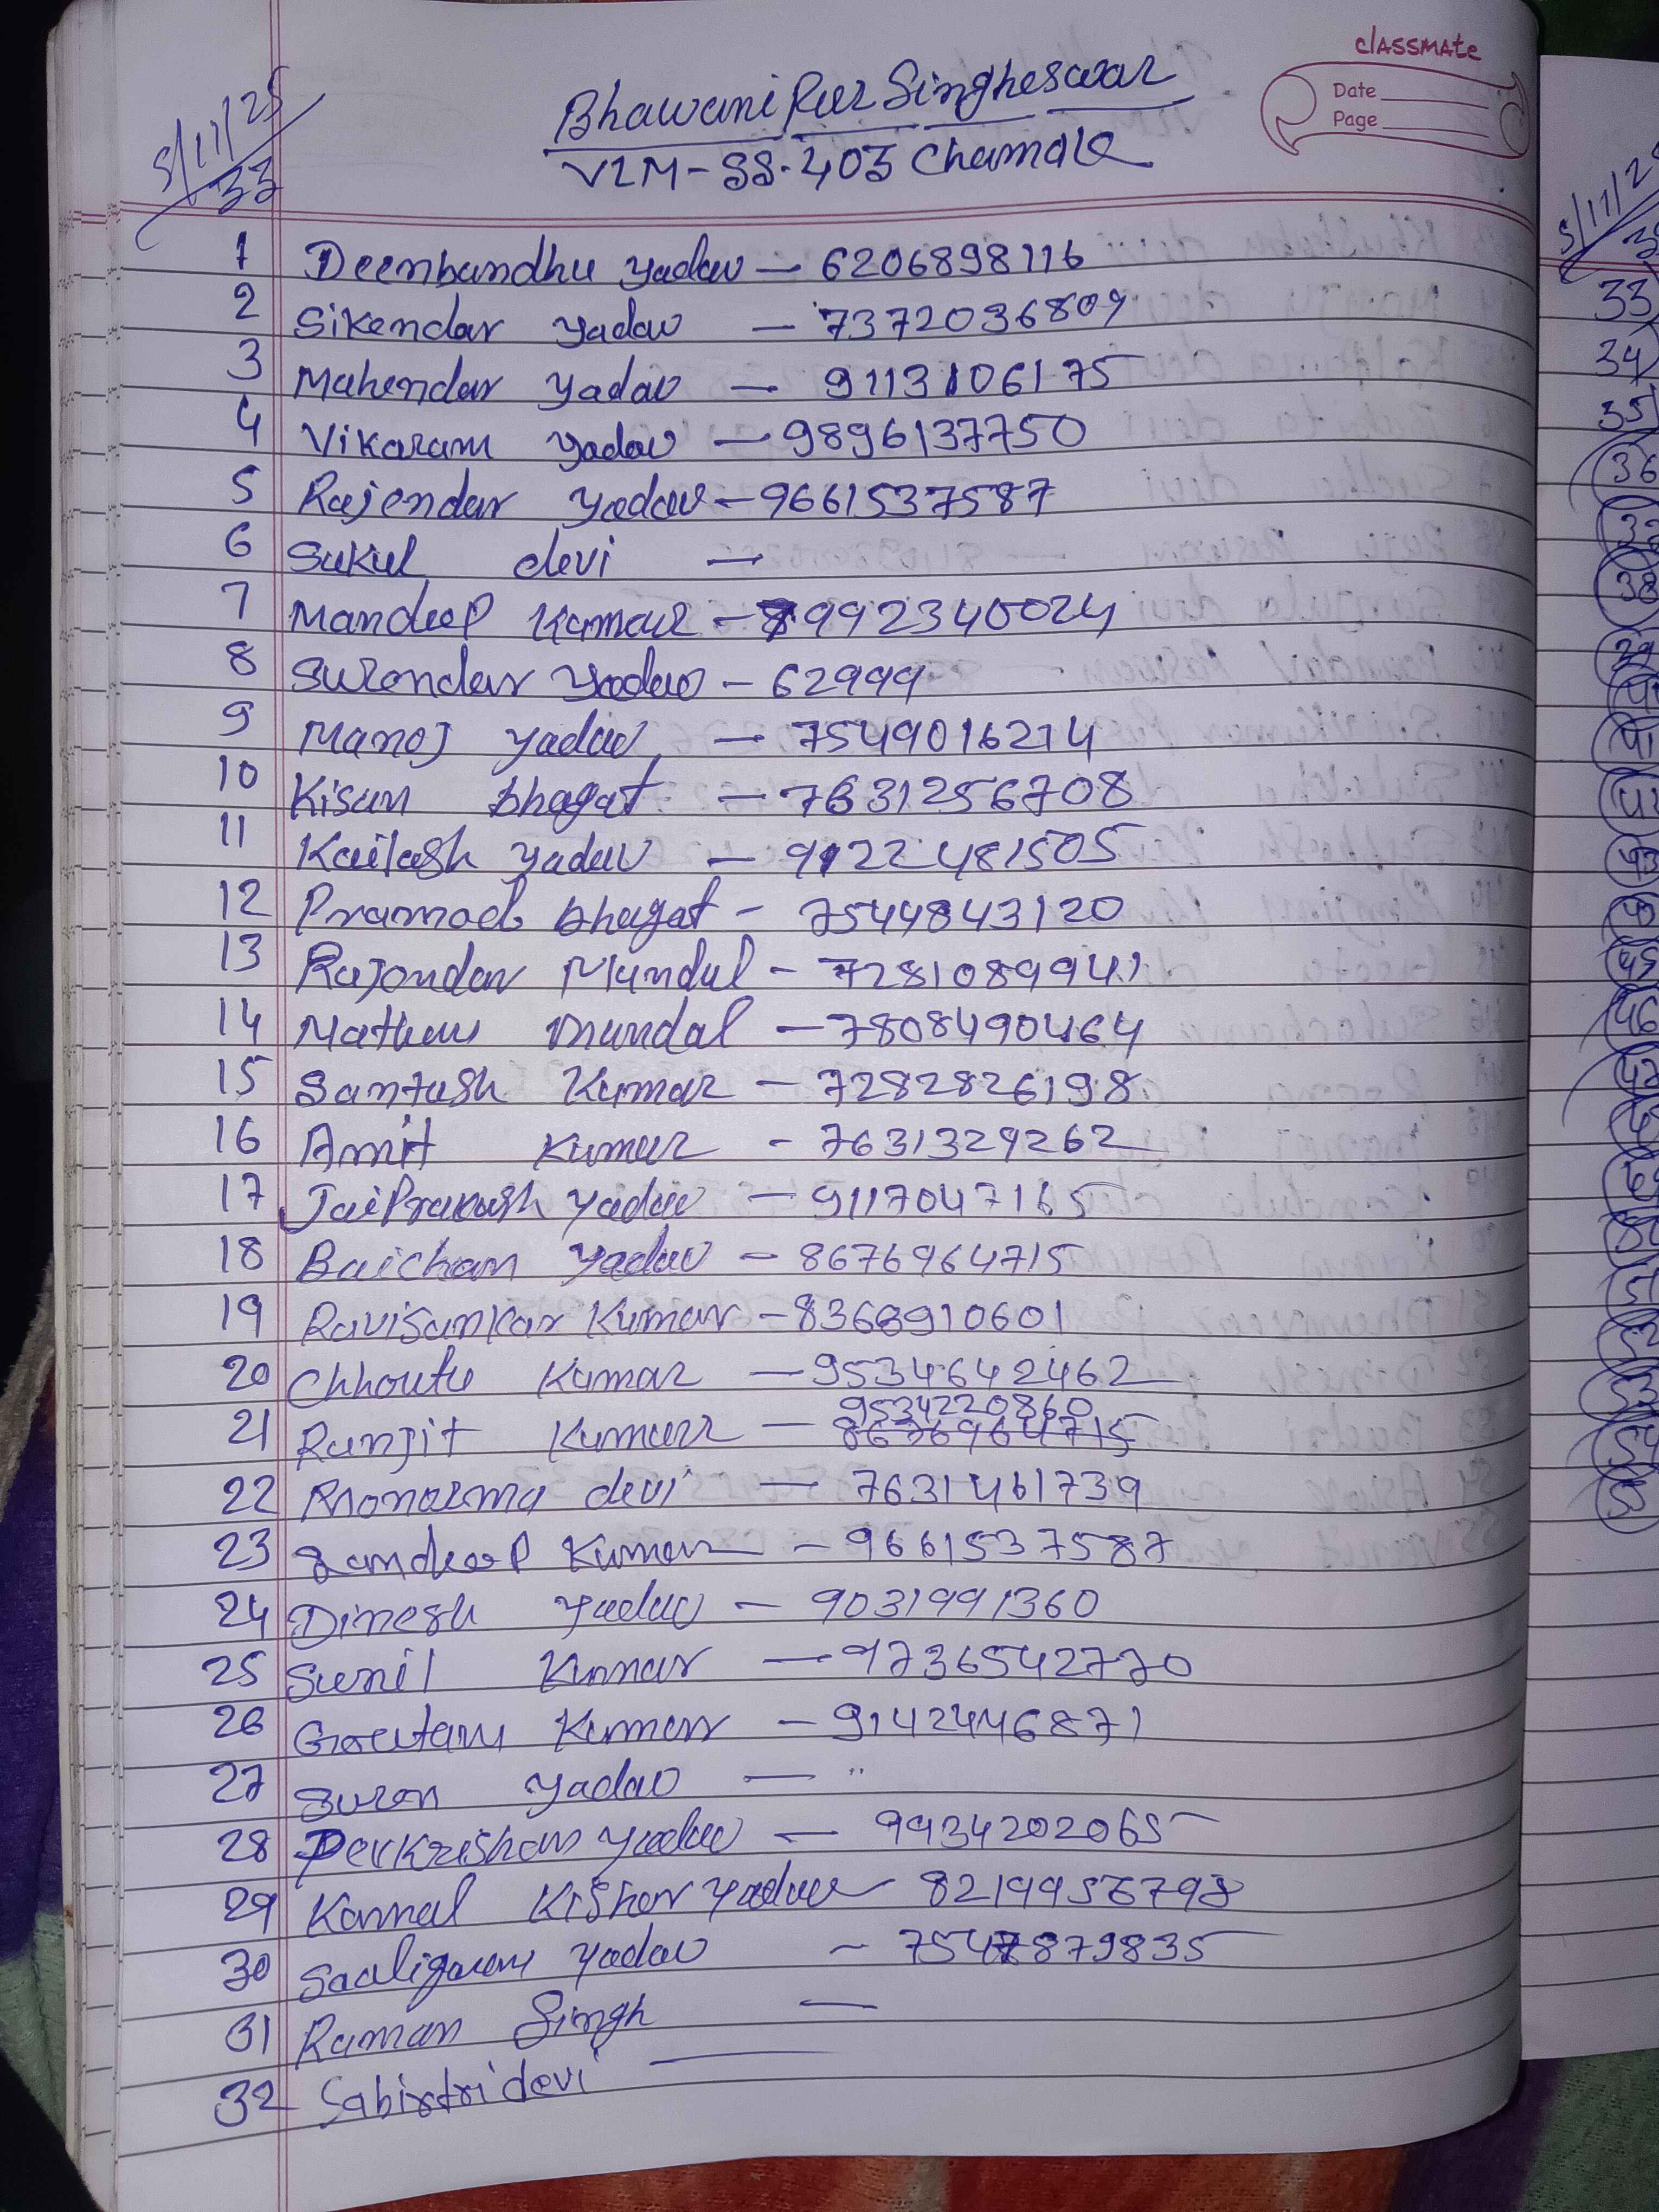 classmate
Date
Page
5/11/25
33
Bhawani Pur Singheswar
VLM-SS-403 Chamala
1 Deenbandhu yadav — 6206898116
2 Sikendar yadav — 7372036809
3 Mahendar yadav — 9113106175
4 Vikaram yadav — 9896137750
5 Rajendar yadav - 9661537587
6 Sukul devi —
7 Mandeep Kumar - 8992340024
8 Surendar yadav - 62999
9 Manoj yadav — 7549016214
10 Kisun bhagat — 7631256708
11 Kailash yadav — 9122481505
12 Pramod bhagat - 7544843120
13 Rajondar Mundul - 7281089941
14 Mathus mundal — 7808490464
15 Santush Kumar — 7282826198
16 Amit Kumar - 7631329262
17 JaiPrakash yadav — 9117047165
18 Baicham yadav — 8676964715
19 Ravisankar Kumar - 8368910601
20 Chhoutu Kumar — 9534642462
9534220860
21 Runjit Kumar — 8676964715
22 Monorma devi — 7631461739
23 Sandeep Kumar - 9661537587
24 Dinesh yadav — 9031991360
25 Sunil Kumar — 9736542770
26 Goutam Kumar — 9142446871
27 Suren yadav — "
28 Devkrishan yadav — 9934202065
29 Kamal Kishor yadav - 8219956798
30 Saaligaram yadav — 7547879835
31 Raman Singh —
32 Sabirtri devi —
5/11/2
33
34
35
36
37
38
39
41
43
45
46
47
51
52
53
54
55